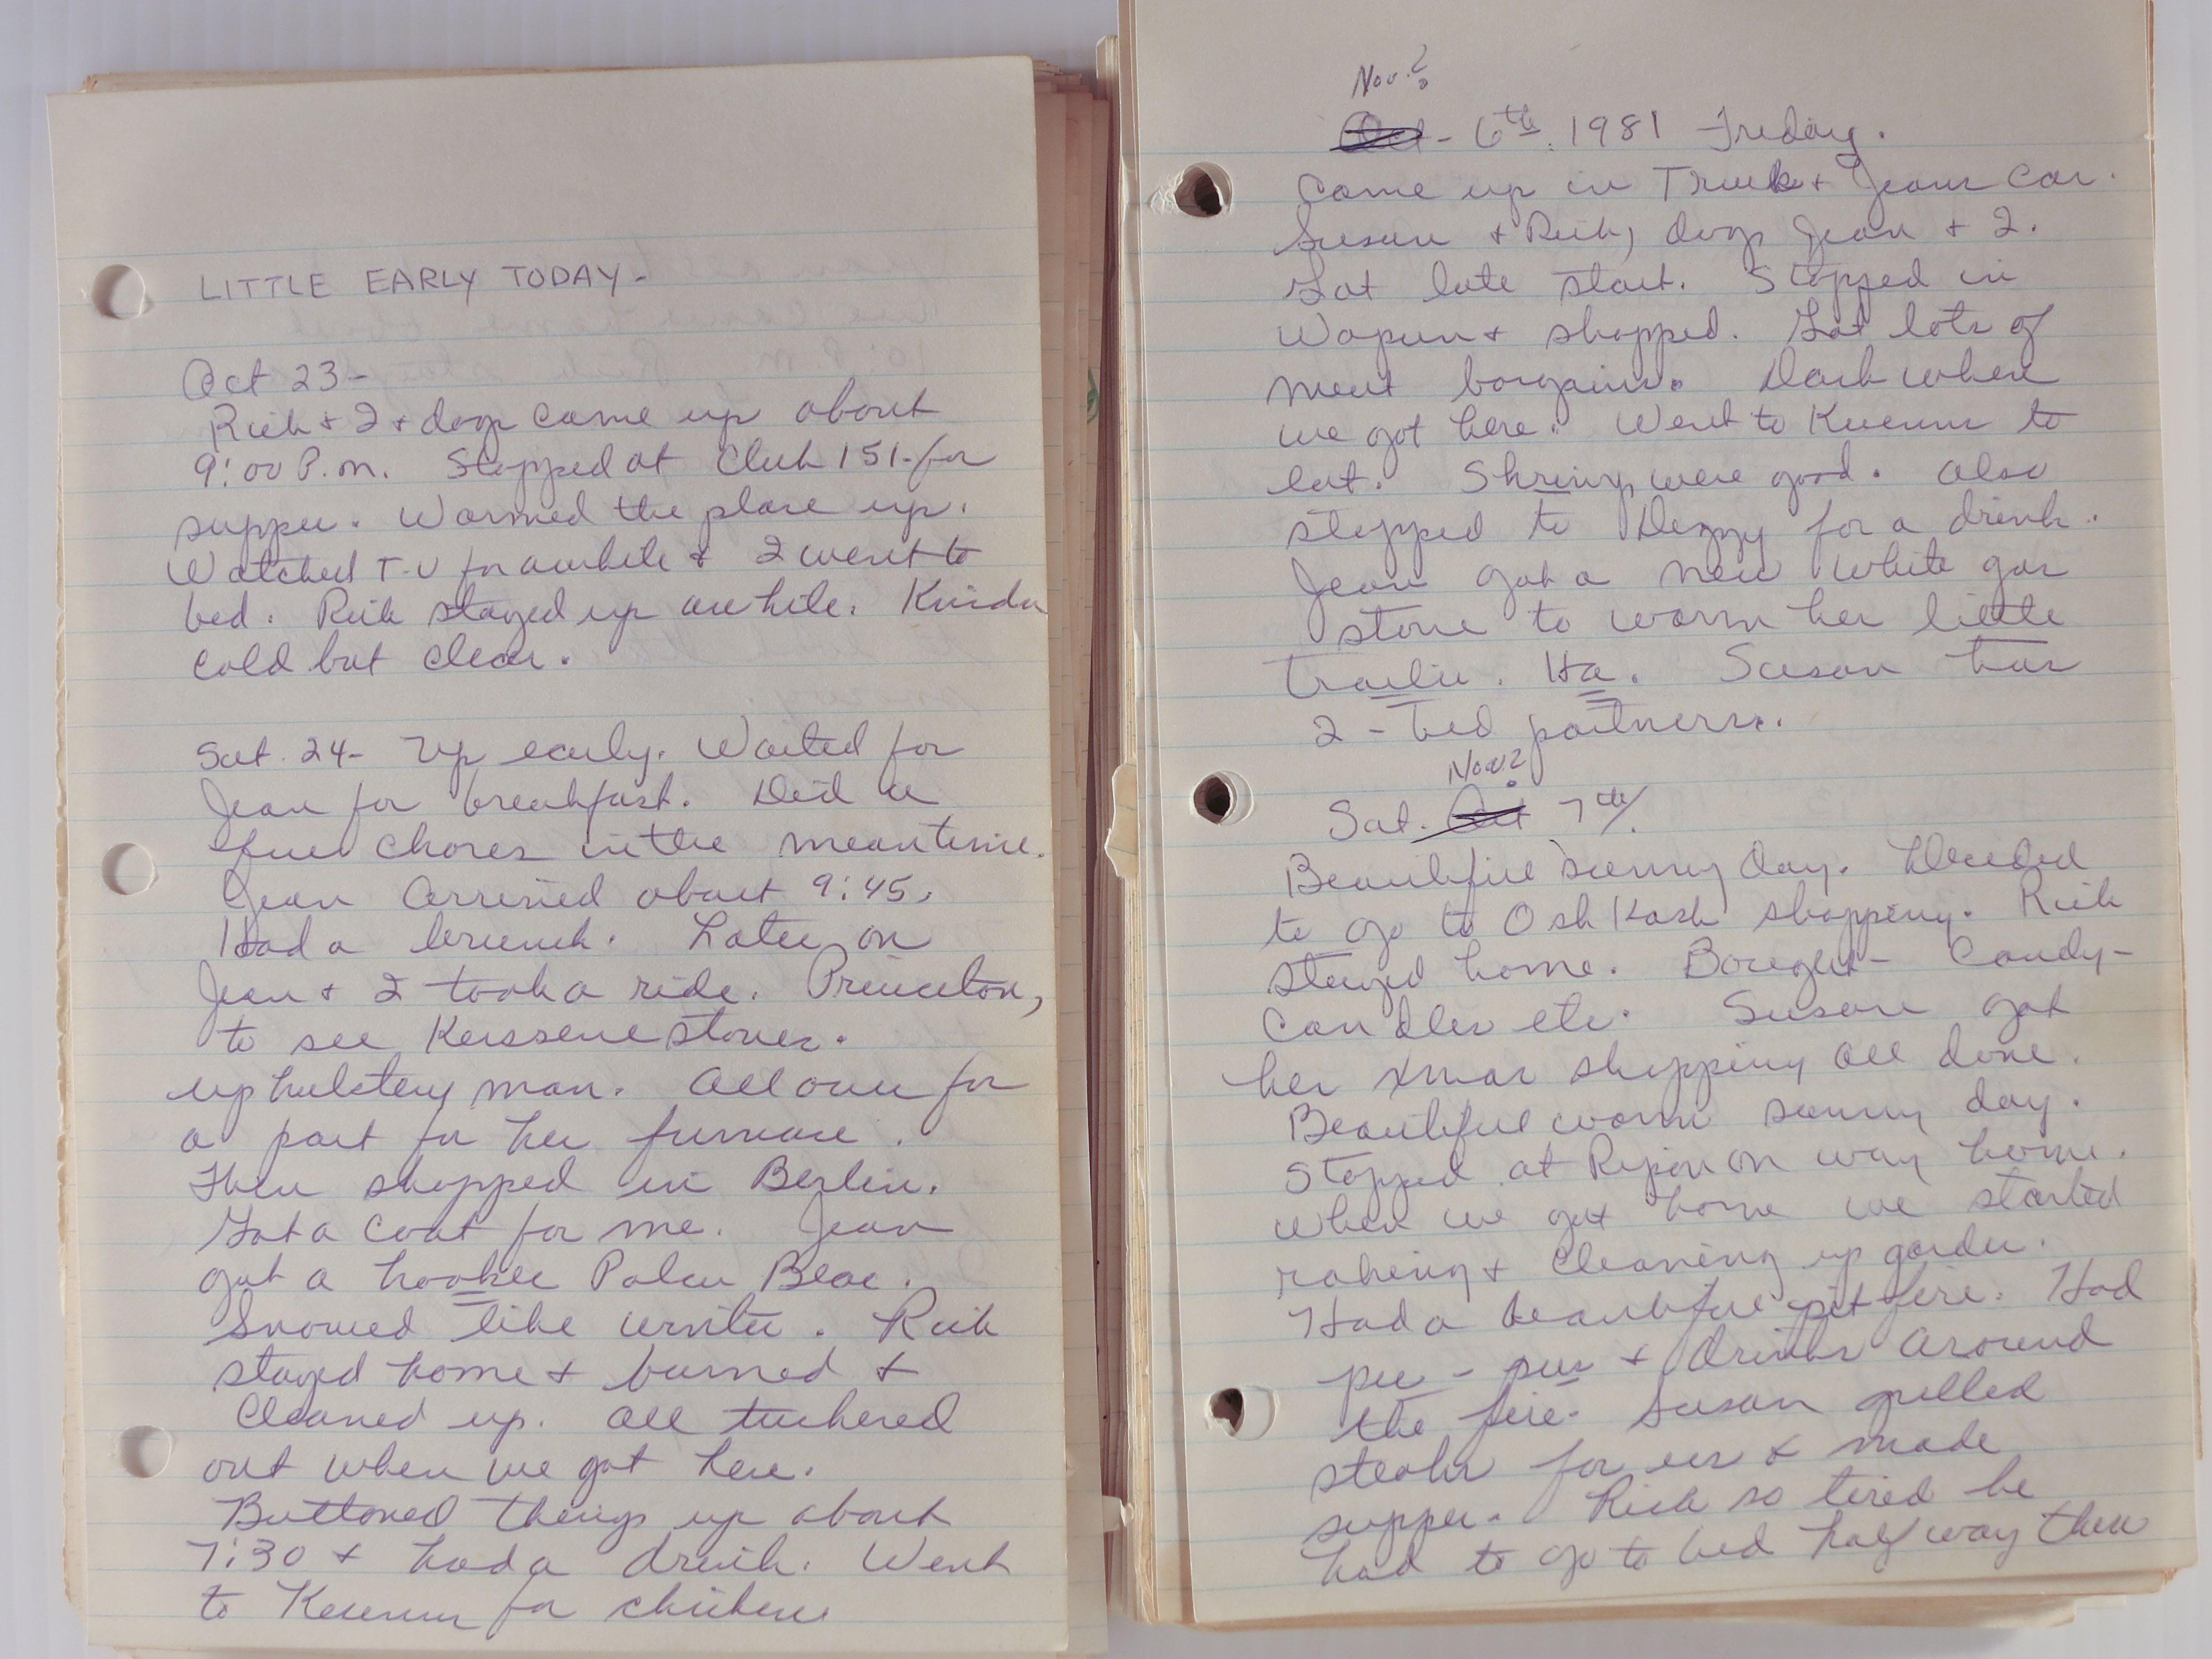 LITTLE EARLY TODAY-
Oct 23-
Rich + I + dog came up about
9:00 P.m. Stopped at Club 151-for
supper. Warmed the place up.
Watched T-V for awhile & I went to
bed. Rich stayed up awhile. Kinda
cold but clear.
Sat. 24- Up early. Waited for
Jean for breakfast. Did a
few chores in the meantime.
Jean arrived about 9:45.
Had a brunch. Later on
Jean + I took a ride. Princeton,
to see Kerosene stoves.
upholstery man. All over for
a part for her furnace.
Then shopped in Berlin.
Got a coat for me. Jean
got a hooker Polar Bear.
Snowed like winter. Rich
stayed home + burned +
cleaned up. All tuckered
out when we got here.
Buttoned things up about
7:30 + had a drink. Went
to for chicken
Nov.?
Oct - 6th. 1981 Friday.
Came up in Truck + Jeans car.
Susan + Rich, dog Jean + I.
Got late start. Stopped in
Waupun + shopped. Got lots of
meat bargains. Dark when
we got here. Went to to
eat. Shrimp were good. Also
stopped to for a drink.
Jean got a new white gas
stove to warm her little
trailer. Ha. Susan has
2 - bed partners.
Nov?
Sat. Oct 7th/.
Beautiful sunny day. Decided
to go to OshKosh shopping. Rich
stayed home. Bought- Candy-
candles etc. Susan got
her xmas shopping all done.
Beautiful warm sunny day.
Stopped at Ripon on way home.
When we got home we started
raking + cleaning up garden.
Had a beautiful pit fire. Had
pu - pus + drinks around
the fire. Susan grilled
steaks for us & made
supper. Rich so tired he
had to go to bed half way thru